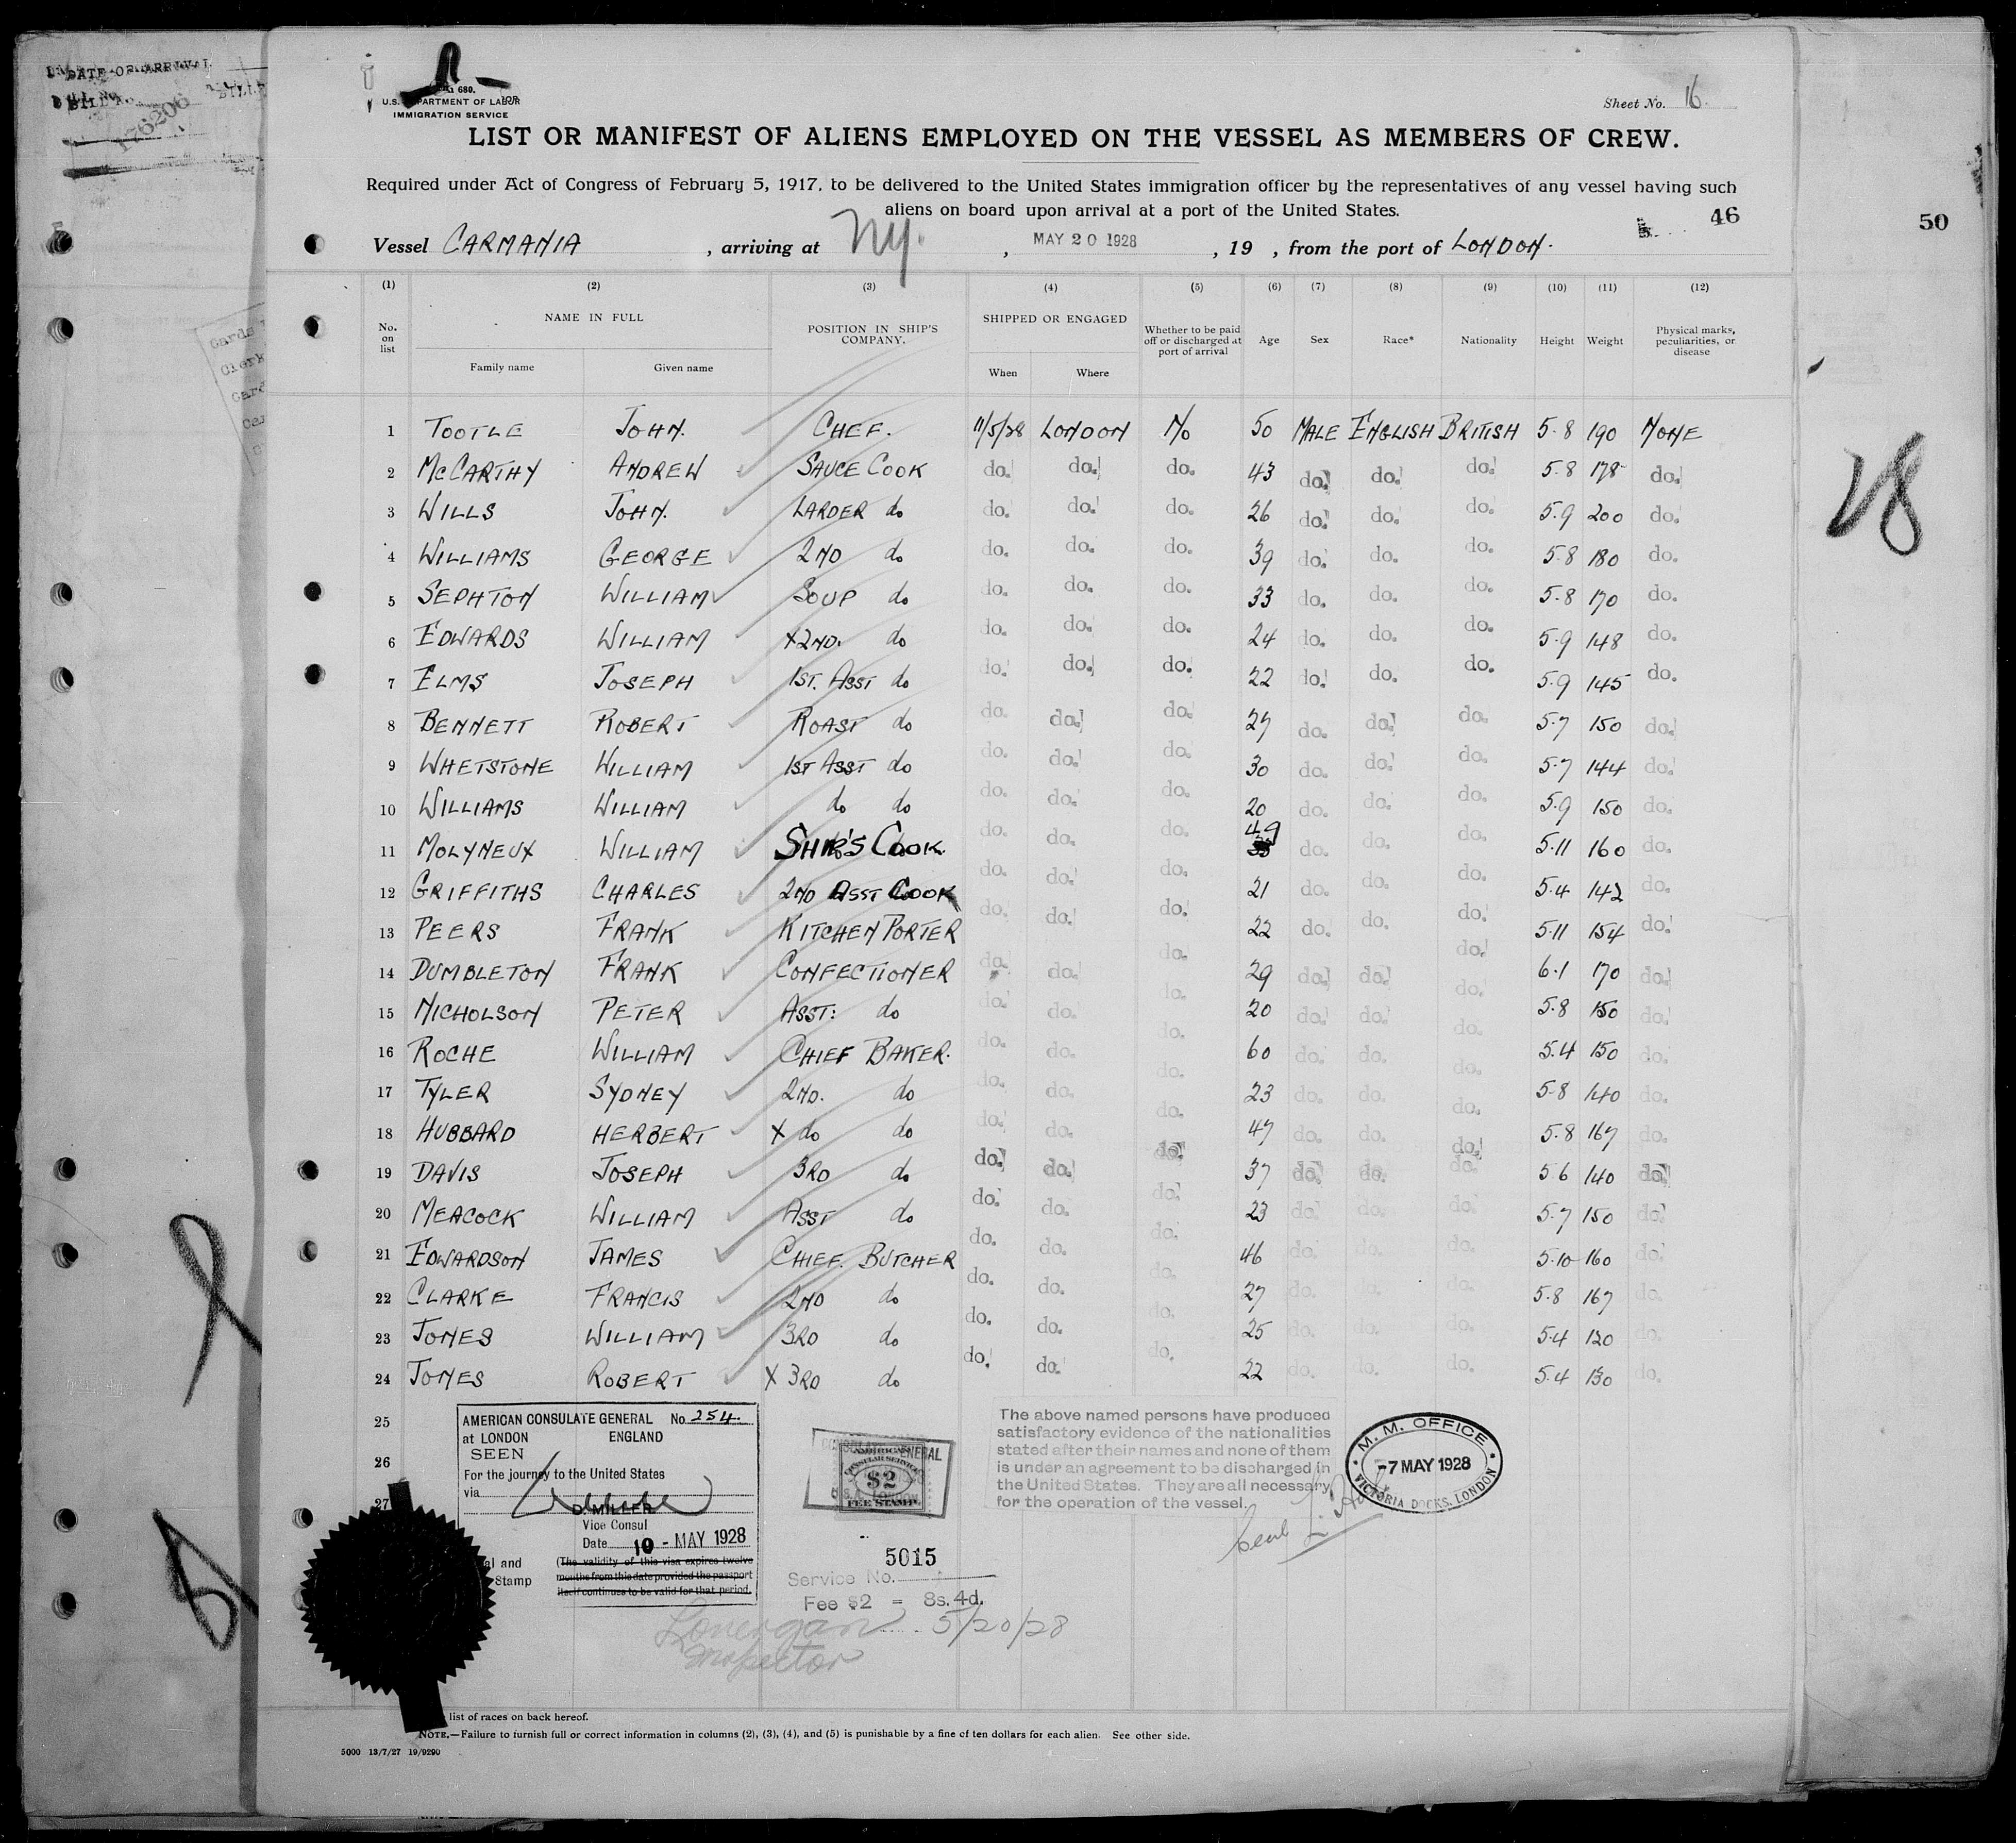 DATE OF ARRIVAL
176206
680.
U.S. DEPARTMENT OF LABOR
IMMIGRATION SERVICE
Sheet No. 16.
LIST OR MANIFEST OF ALIENS EMPLOYED ON THE VESSEL AS MEMBERS OF CREW.
Required under Act of Congress of February 5, 1917, to be delivered to the United States immigration officer by the representatives of any vessel having such
aliens on board upon arrival at a port of the United States.
46
50
Vessel CARMANIA , arriving at NY. , MAY 20 1928 , 19 , from the port of LONDON.
(1) (2) (3) (4) (5) (6) (7) (8) (9) (10) (11) (12)
No. on list NAME IN FULL Family name Given name POSITION IN SHIP'S COMPANY. SHIPPED OR ENGAGED When Where Whether to be paid off or discharged at port of arrival Age Sex Race* Nationality Height Weight Physical marks, peculiarities, or disease
1 TOOTLE JOHN. CHEF. 11/5/28 LONDON No 50 MALE ENGLISH BRITISH 5-8 190 NONE
2 McCARTHY ANDREW SAUCE COOK do. do. do. 43 do. do. do. 5-8 178 do.
3 WILLS JOHN. LARDER do do. do. do. 26 do. do. do. 5-9 200 do.
4 WILLIAMS GEORGE 2ND do do. do. do. 39 do. do. do. 5-8 180 do.
5 SEPHTON WILLIAM SOUP do do. do. do. 33 do. do. do. 5-8 170 do.
6 EDWARDS WILLIAM X2ND. do do. do. do. 24 do. do. do. 5-9 148 do.
7 ELMS JOSEPH 1ST. ASST do do. do. do. 22 do. do. do. 5-9 145 do.
8 BENNETT ROBERT ROAST do do. do. do. 27 do. do. do. 5-7 150 do.
9 WHETSTONE WILLIAM 1ST ASST do do. do. do. 30 do. do. do. 5-7 144 do.
10 WILLIAMS WILLIAM do do do. do. do. 20 do. do. do. 5-9 150 do.
11 MOLYNEUX WILLIAM SHIP'S COOK. do. do. do. 49 do. do. do. 5-11 160 do.
12 GRIFFITHS CHARLES 2ND ASST COOK do. do. do. 21 do. do. do. 5-4 142 do.
13 PEERS FRANK KITCHEN PORTER do. do. do. 22 do. do. do. 5-11 154 do.
14 DUMBLETON FRANK CONFECTIONER do. do. do. 29 do. do. do. 6-1 170 do.
15 NICHOLSON PETER ASST: do do. do. do. 20 do. do. do. 5-8 150 do.
16 ROCHE WILLIAM CHIEF BAKER. do. do. do. 60 do. do. do. 5-4 150 do.
17 TYLER SYDNEY 2ND. do do. do. do. 23 do. do. do. 5-8 140 do.
18 HUBBARD HERBERT X do do do. do. do. 47 do. do. do. 5-8 167 do.
19 DAVIS JOSEPH 3RD do do. do. do. 37 do. do. do. 5-6 140 do.
20 MEACOCK WILLIAM ASST do do. do. do. 23 do. do. do. 5-7 150 do.
21 EDWARDSON JAMES CHIEF. BUTCHER do. do. do. 46 do. do. do. 5-10 160 do.
22 CLARKE FRANCIS 2ND do do. do. do. 27 do. do. do. 5-8 167 do.
23 JONES WILLIAM 3RD do do. do. do. 25 do. do. do. 5-4 120 do.
24 JONES ROBERT X 3RD do do. do. do. 22 do. do. do. 5-4 130 do.
25
26
27
28
AMERICAN CONSULATE GENERAL No. 254.
at LONDON ENGLAND
SEEN
For the journey to the United States
via
D. MILLER
Vice Consul
Date 10 - MAY 1928
(The validity of this visa expires twelve
months from this date provided the passport
itself continues to be valid for that period.
al and
Stamp
AMERICAN
CONSULAR SERVICE
$2
FEE STAMP
5015
Service No.
Fee $2 = 8s. 4d.
The above named persons have produced
satisfactory evidence of the nationalities
stated after their names and none of them
is under an agreement to be discharged in
the United States. They are all necessary
for the operation of the vessel.
M. M. OFFICE
-7 MAY 1928
VICTORIA DOCKS, LONDON
Lonergan 5/20/28
Inspector
list of races on back hereof.
NOTE.—Failure to furnish full or correct information in columns (2), (3), (4), and (5) is punishable by a fine of ten dollars for each alien. See other side.
5000 13/7/27 19/9290